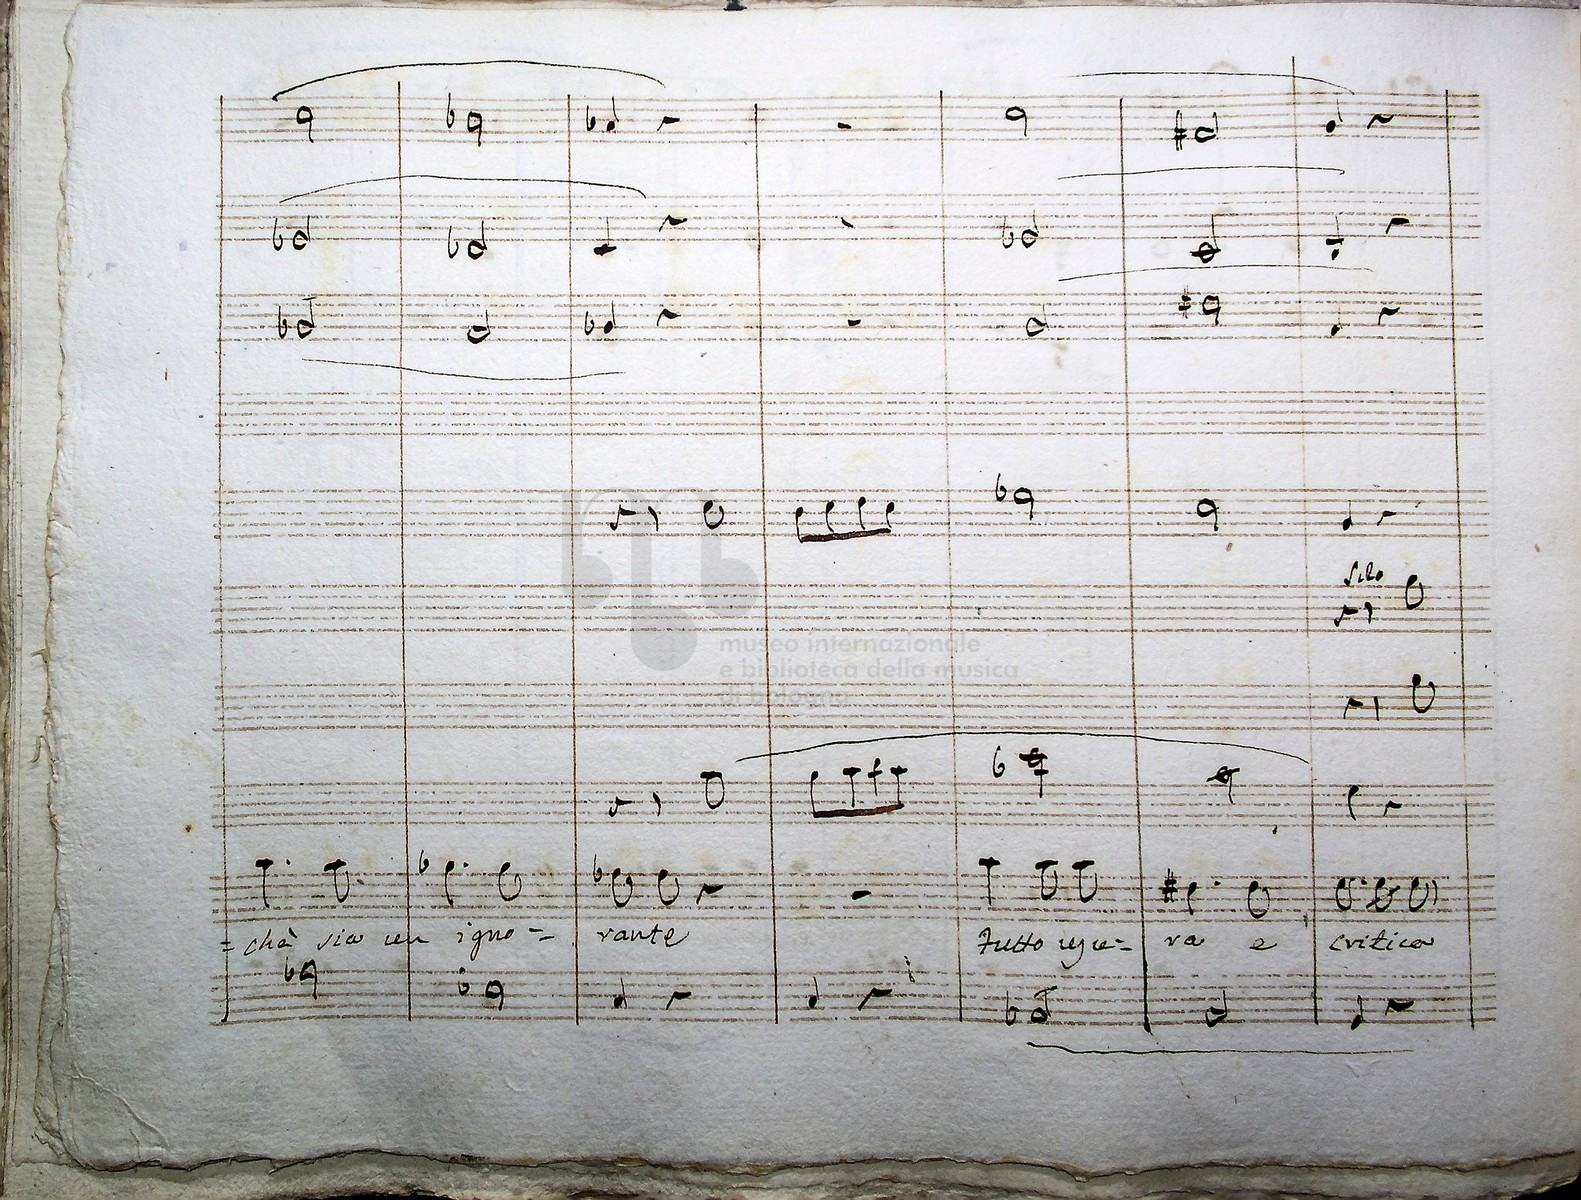 Solo
museo internazionale
e biblioteca della musica
di bologna
= chè sia un igno = rante tutto igno = ra e critica